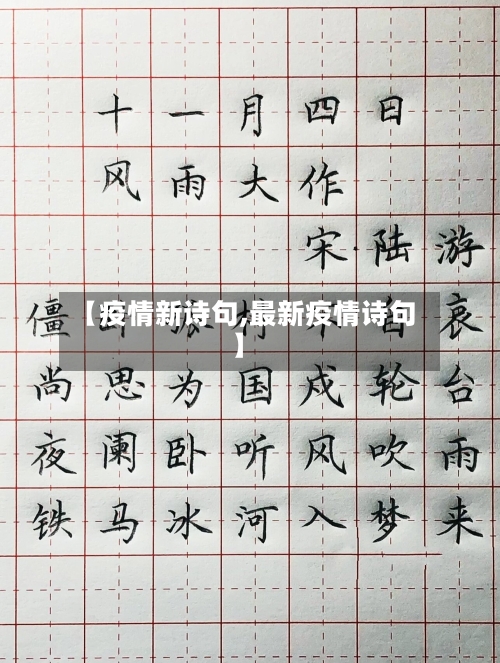 十一月四日
风雨大作
宋·陆游
【疫情新诗句,最新疫情诗句
】
僵 哀
尚思为国戍轮台
夜阑卧听风吹雨
铁马冰河入梦来